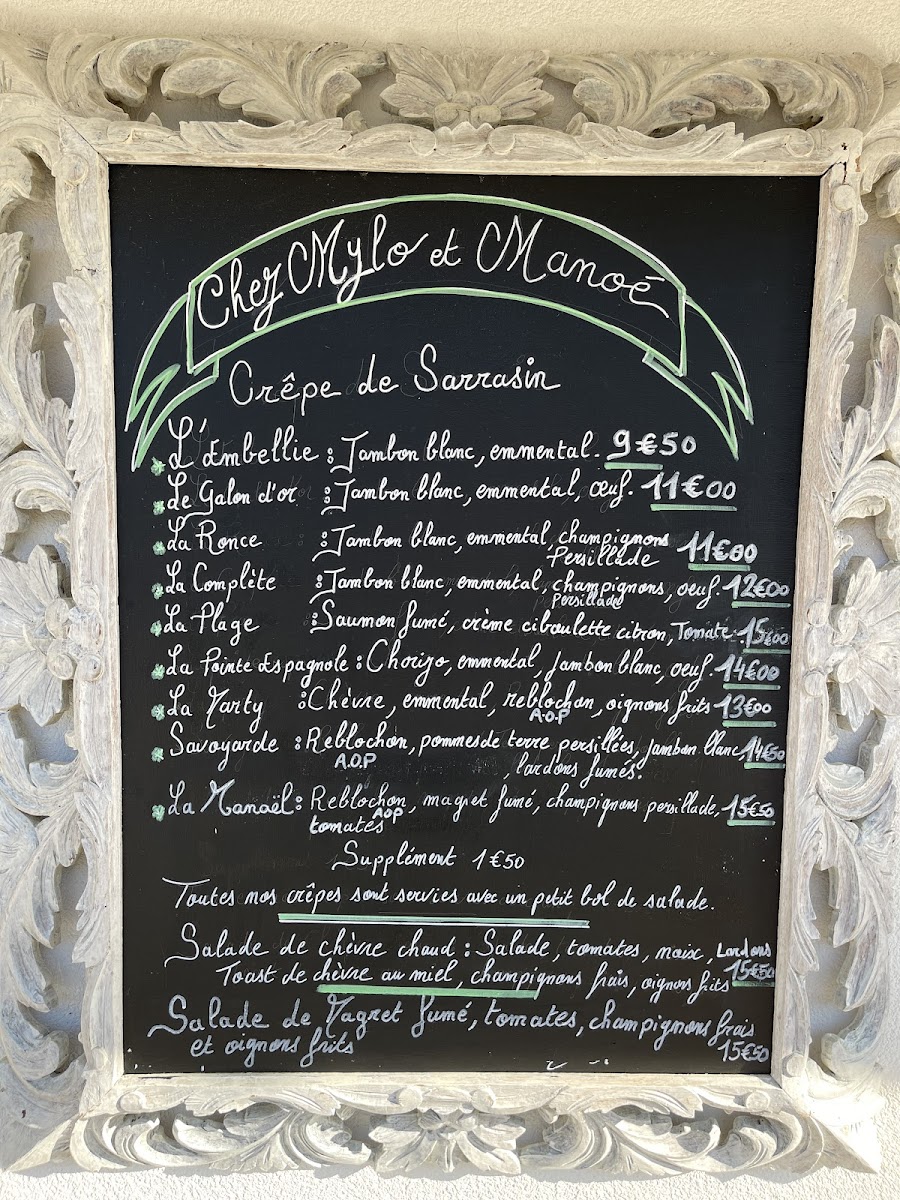 Chez Mylo et Manoé
Crêpe de Sarrasin
L'Embellie : Jambon blanc, emmental. 9€50
Le Galon d'or : Jambon blanc, emmental, œuf. 11€00
La Ronce : Jambon blanc, emmental, champignons 11€00
Persillade
La Complète : Jambon blanc, emmental, champignons, oeuf. 12€00
Persillade
La Plage : Saumon fumé, crème ciboulette citron, Tomate. 15€00
La Pointe Espagnole : Chorizo, emmental, jambon blanc, oeuf. 14€00
La Marty : Chèvre, emmental, reblochon, oignons frits 13€00
A.O.P
Savoyarde : Reblochon, pommes de terre persillées, jambon blanc, 14€50
A.O.P , lardons fumés.
La Manaël : Reblochon, magret fumé, champignons persillade, 15€50
tomates AOP
Supplément 1€50
Toutes nos crêpes sont servies avec un petit bol de salade.
Salade de chèvre chaud : Salade, tomates, noix, Lardons
Toast de chèvre au miel, champignons frais, oignons frits 15€50
Salade de Magret fumé, tomates, champignons frais
et oignons frits 15€50